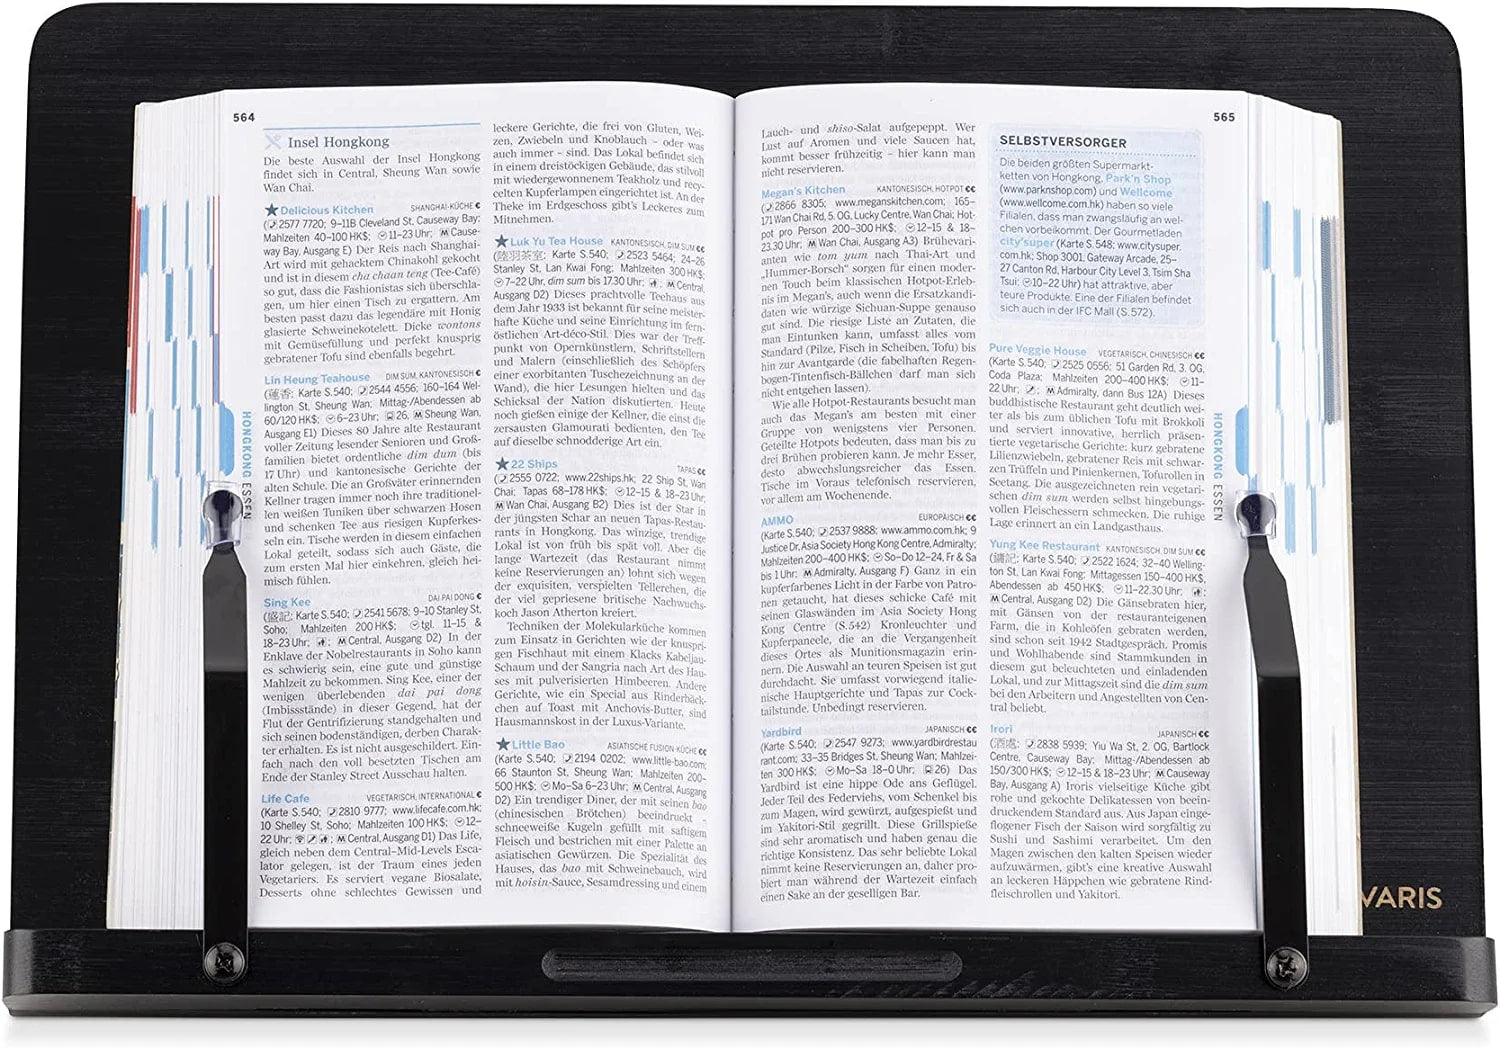 564
Insel Hongkong
Die beste Auswahl der Insel Hongkong
findet sich in Central, Sheung Wan sowie
Wan Chai.
★Delicious Kitchen SHANGHAI-KÜCHE €
(2577 7720; 9–11B Cleveland St, Causeway Bay;
Mahlzeiten 40–100 HK$; 11–23 Uhr; M Cause-
way Bay, Ausgang E) Der Reis nach Shanghai-
Art wird mit gehacktem Chinakohl gekocht
und ist in diesem cha chaan teng (Tee-Café)
so gut, dass die Fashionistas sich überschla-
gen, um hier einen Tisch zu ergattern. Am
besten passt dazu das legendäre mit Honig
glasierte Schweinekotelett. Dicke wontons
mit Gemüsefüllung und perfekt knusprig
gebratener Tofu sind ebenfalls begehrt.
Lin Heung Teahouse DIM SUM, KANTONESISCH €
(蓮香; Karte S.540; 2544 4556; 160–164 Wel-
lington St, Sheung Wan; Mittag-/Abendessen ab
60/120 HK$; 6–23 Uhr; 26, M Sheung Wan,
Ausgang E1) Dieses 80 Jahre alte Restaurant
voller Zeitung lesender Senioren und Groß-
familien bietet ordentliche dim dum (bis
17 Uhr) und kantonesische Gerichte der
alten Schule. Die an Großväter erinnernden
Kellner tragen immer noch ihre traditionel-
len weißen Tuniken über schwarzen Hosen
und schenken Tee aus riesigen Kupferkes-
seln ein. Tische werden in diesem einfachen
Lokal geteilt, sodass sich auch Gäste, die
zum ersten Mal hier einkehren, gleich hei-
misch fühlen.
Sing Kee DAI PAI DONG €
(盛記; Karte S.540; 2541 5678; 9–10 Stanley St,
Soho; Mahlzeiten 200 HK$; tgl. 11–15 &
18–23 Uhr; M Central, Ausgang D2) In der
Enklave der Nobelrestaurants in Soho kann
es schwierig sein, eine gute und günstige
Mahlzeit zu bekommen. Sing Kee, einer der
wenigen überlebenden dai pai dong
(Imbissstände) in dieser Gegend, hat der
Flut der Gentrifizierung standgehalten und
sich seinen bodenständigen, derben Charak-
ter erhalten. Es ist nicht ausgeschildert. Ein-
fach nach den voll besetzten Tischen am
Ende der Stanley Street Ausschau halten.
Life Cafe VEGETARISCH, INTERNATIONAL €
(Karte S.540; 2810 9777; www.lifecafe.com.hk;
10 Shelley St, Soho; Mahlzeiten 100 HK$; 12–
22 Uhr; M Central, Ausgang D1) Das Life,
gleich neben dem Central–Mid-Levels Esca-
lator gelegen, ist der Traum eines jeden
Vegetariers. Es serviert vegane Biosalate,
Desserts ohne schlechtes Gewissen und
leckere Gerichte, die frei von Gluten, Wei-
zen, Zwiebeln und Knoblauch – oder was
auch immer – sind. Das Lokal befindet sich
in einem dreistöckigen Gebäude, das stilvoll
mit wiedergewonnenem Teakholz und recy-
celten Kupferlampen eingerichtet ist. An der
Theke im Erdgeschoss gibt's Leckeres zum
Mitnehmen.
★Luk Yu Tea House KANTONESISCH, DIM SUM €€
(陸羽茶室; Karte S.540; 2523 5464; 24–26
Stanley St, Lan Kwai Fong; Mahlzeiten 300 HK$;
7–22 Uhr, dim sum bis 17.30 Uhr; M Central,
Ausgang D2) Dieses prachtvolle Teehaus aus
dem Jahr 1933 ist bekannt für seine meister-
hafte Küche und seine Einrichtung im fern-
östlichen Art-déco-Stil. Dies war der Treff-
punkt von Opernkünstlern, Schriftstellern
und Malern (einschließlich des Schöpfers
einer exorbitanten Tuschezeichnung an der
Wand), die hier Lesungen hielten und das
Schicksal der Nation diskutierten. Heute
noch gießen einige der Kellner, die einst die
zersausten Glamourati bedienten, den Tee
auf dieselbe schnodderige Art ein.
★22 Ships TAPAS €€
(2555 0722; www.22ships.hk; 22 Ship St, Wan
Chai; Tapas 68–178 HK$; 12–15 & 18–23 Uhr;
M Wan Chai, Ausgang B2) Dies ist der Star in
der jüngsten Schar an neuen Tapas-Restau-
rants in Hongkong. Das winzige, trendige
Lokal ist von früh bis spät voll. Aber die
lange Wartezeit (das Restaurant nimmt
keine Reservierungen an) lohnt sich wegen
der exquisiten, verspielten Tellerchen, die
der viel gepriesene britische Nachwuchs-
koch Jason Atherton kreiert.
Techniken der Molekularküche kommen
zum Einsatz in Gerichten wie der knuspri-
gen Fischhaut mit einem Klacks Kabeljau-
Schaum und der Sangria nach Art des Hau-
ses mit pulverisierten Himbeeren. Andere
Gerichte, wie ein Special aus Rinderbäck-
chen auf Toast mit Anchovis-Butter, sind
Hausmannskost in der Luxus-Variante.
★Little Bao ASIATISCHE FUSION-KÜCHE €€
(Karte S.540; 2194 0202; www.little-bao.com;
66 Staunton St, Sheung Wan; Mahlzeiten 200–
500 HK$; Mo–Sa 6–23 Uhr; M Central, Ausgang
D2) Ein trendiger Diner, der mit seinen bao
(chinesischen Brötchen) beeindruckt –
schneeweiße Kugeln gefüllt mit saftigem
Fleisch und bestrichen mit einer Palette an
asiatischen Gewürzen. Die Spezialität des
Hauses, das bao mit Schweinebauch, wird
mit hoisin-Sauce, Sesamdressing und einem
HONGKONG ESSEN
565
Lauch- und shiso-Salat aufgepeppt. Wer
Lust auf Aromen und viele Saucen hat,
kommt besser frühzeitig – hier kann man
nicht reservieren.
Megan's Kitchen KANTONESISCH, HOTPOT €€
(2866 8305; www.meganskitchen.com; 165–
171 Wan Chai Rd, 5. OG, Lucky Centre, Wan Chai; Hot-
pot pro Person 200–300 HK$; 12–15 & 18–
23.30 Uhr; M Wan Chai, Ausgang A3) Brühevari-
anten wie tom yum nach Thai-Art und
„Hummer-Borsch“ sorgen für einen moder-
nen Touch beim klassischen Hotpot-Erleb-
nis im Megan's, auch wenn die Ersatzkandi-
daten wie würzige Sichuan-Suppe genauso
gut sind. Die riesige Liste an Zutaten, die
man Eintunken kann, umfasst alles vom
Standard (Pilze, Fisch in Scheiben, Tofu) bis
hin zur Avantgarde (die fabelhaften Regen-
bogen-Tintenfisch-Bällchen darf man sich
nicht entgehen lassen).
Wie alle Hotpot-Restaurants besucht man
auch das Megan's am besten mit einer
Gruppe von wenigstens vier Personen.
Geteilte Hotpots bedeuten, dass man bis zu
drei Brühen probieren kann. Je mehr Esser,
desto abwechslungsreicher das Essen.
Tische im Voraus telefonisch reservieren,
vor allem am Wochenende.
AMMO EUROPÄISCH €€
(Karte S.540; 2537 9888; www.ammo.com.hk; 9
Justice Dr, Asia Society Hong Kong Centre, Admiralty;
Mahlzeiten 200–400 HK$; So–Do 12–24, Fr & Sa
bis 1 Uhr; M Admiralty, Ausgang F) Ganz in ein
kupferfarbenes Licht in der Farbe von Patro-
nen getaucht, hat dieses schicke Café mit
seinen Glaswänden im Asia Society Hong
Kong Centre (S.542) Kronleuchter und
Kupferpaneele, die an die Vergangenheit
dieses Ortes als Munitionsmagazin erin-
nern. Die Auswahl an teuren Speisen ist gut
durchdacht. Sie umfasst vorwiegend italie-
nische Hauptgerichte und Tapas zur Cock-
tailstunde. Unbedingt reservieren.
Yardbird JAPANISCH €€
(Karte S.540; 2547 9273; www.yardbirdrestau
rant.com; 33–35 Bridges St, Sheung Wan; Mahlzei-
ten 300 HK$; Mo–Sa 18–0 Uhr; 26) Das
Yardbird ist eine hippe Ode ans Geflügel.
Jeder Teil des Federviehs, vom Schenkel bis
zum Magen, wird gewürzt, aufgespießt und
im Yakitori-Stil gegrillt. Diese Grillspieße
sind sehr aromatisch und haben genau die
richtige Konsistenz. Das sehr beliebte Lokal
nimmt keine Reservierungen an, daher pro-
biert man während der Wartezeit einfach
einen Sake an der geselligen Bar.
SELBSTVERSORGER
Die beiden größten Supermarkt-
ketten von Hongkong, Park'n Shop
(www.parknshop.com) und Wellcome
(www.wellcome.com.hk) haben so viele
Filialen, dass man zwangsläufig an wel-
chen vorbeikommt. Der Gourmetladen
city'super (Karte S. 548; www.citysuper.
com.hk; Shop 3001, Gateway Arcade, 25–
27 Canton Rd, Harbour City Level 3, Tsim Sha
Tsui; 10–22 Uhr) hat attraktive, aber
teure Produkte. Eine der Filialen befindet
sich auch in der IFC Mall (S.572).
Pure Veggie House VEGETARISCH, CHINESISCH €€
(Karte S.540; 2525 0556; 51 Garden Rd, 3. OG,
Coda Plaza; Mahlzeiten 200–400 HK$; 11–
22 Uhr; M Admiralty, dann Bus 12A) Dieses
buddhistische Restaurant geht deutlich wei-
ter als bis zum üblichen Tofu mit Brokkoli
und serviert innovative, herrlich präsen-
tierte vegetarische Gerichte: kurz gebratene
Lilienzwiebeln, gebratener Reis mit schwar-
zen Trüffeln und Pinienkernen, Tofurollen in
Seetang. Die ausgezeichneten rein vegetari-
schen dim sum werden selbst hingebungs-
vollen Fleischessern schmecken. Die ruhige
Lage erinnert an ein Landgasthaus.
Yung Kee Restaurant KANTONESISCH, DIM SUM €€
(鏞記; Karte S.540; 2522 1624; 32–40 Welling-
ton St, Lan Kwai Fong; Mittagessen 150–400 HK$,
Abendessen ab 450 HK$; 11–22.30 Uhr;
M Central, Ausgang D2) Die Gänsebraten hier,
mit Gänsen von der restauranteigenen
Farm, die in Kohleöfen gebraten werden,
sind schon seit 1942 Stadtgespräch. Promis
und Wohlhabende sind Stammkunden in
diesem gut beleuchteten und einladenden
Lokal, und zur Mittagszeit sind die dim sum
bei den Arbeitern und Angestellten von Cen-
tral beliebt.
Irori JAPANISCH €€
(酒處; 2838 5939; Yiu Wa St, 2. OG, Bartlock
Centre, Causeway Bay; Mittag-/Abendessen ab
150/300 HK$; 12–15 & 18–23 Uhr; M Causeway
Bay, Ausgang A) Iroris vielseitige Küche gibt
rohe und gekochte Delikatessen von beein-
druckendem Standard aus. Aus Japan einge-
flogener Fisch der Saison wird sorgfältig zu
Sushi und Sashimi verarbeitet. Um den
Magen zwischen den kalten Speisen wieder
aufzuwärmen, gibt's eine kreative Auswahl
an leckeren Häppchen wie gebratene Rind-
fleischrollen und Yakitori.
HONGKONG ESSEN
VARIS